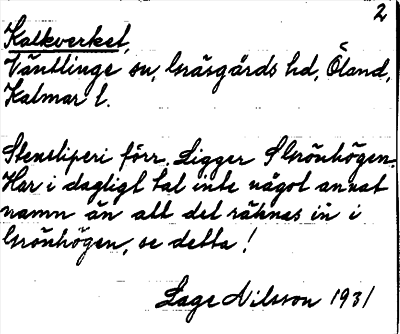 2
Kalkverket,
Ventlinge sn, Gräsgårds hd, Öland,
Kalmar l.
Stensliperi förr. Ligger S Grönhögen.
Har i dagligt tal inte något annat
namn än att det räknas in i
Grönhögen, se detta!
Lage Nilsson 1931